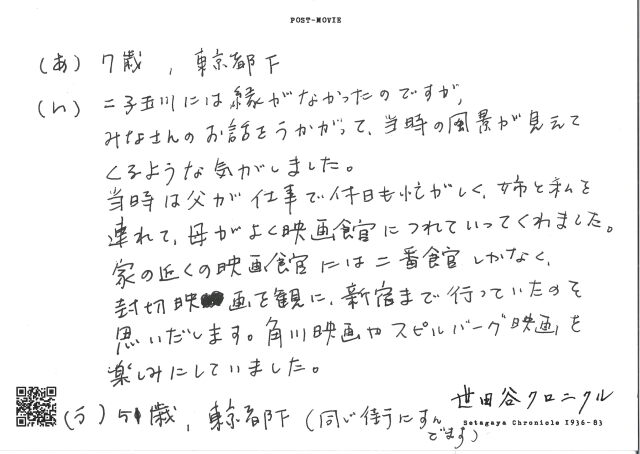 POST-MOVIE
(あ) 7歳 , 東京都下
(い) 二子玉川には縁がなかったのですが,
みなさんのお話をうかがって、当時の風景が見えて
くるような気がしました。
当時は父が仕事で休日も忙がしく、姉と私を
連れて、母がよく映画館につれていってくれました。
家の近くの映画館には二番館しかなく、
封切映画を観に、新宿まで行っていたのを
思いだします。角川映画やスピルバーグ映画を
楽しみにしていました。
(う) 51歳, 東京都下 (同じ街にすん
でます)
世田谷クロニクル
Setagaya Chronicle 1936-83